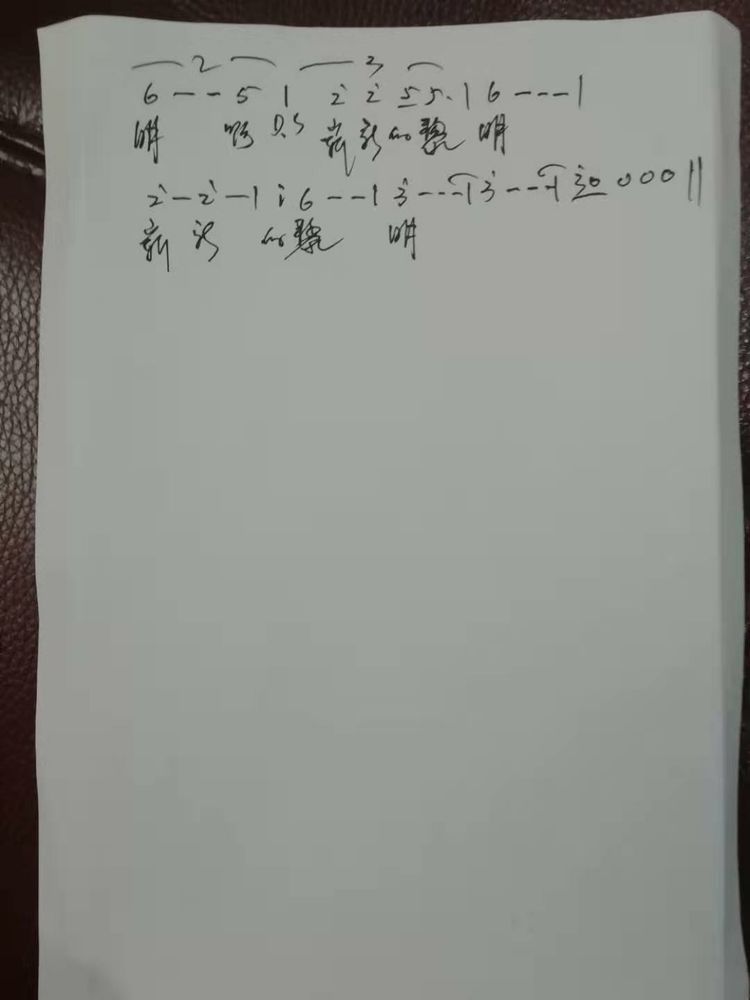 2 3
6 - - - 5 | 2̇ 2̇ 5 5. | 6 - - - |
明 呀 D.S 崭新的黎 明
2̇ - 2̇ - | i 6 - - | 3̇ - - - | 3̇ - - - | 3̇0 0 0 0 ||
崭 新 的黎 明